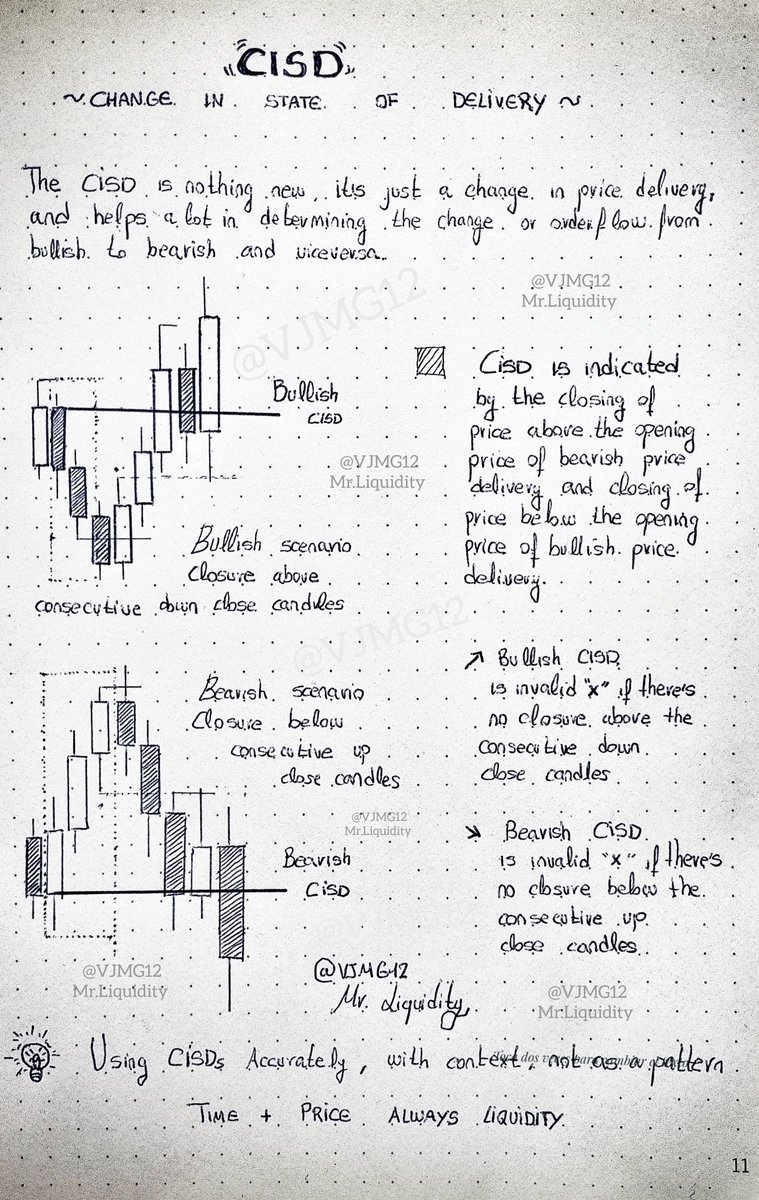 CISD
~ CHANGE IN STATE OF DELIVERY ~
The CISD is nothing new, its just a change in price delivery,
and helps a lot in determining the change or orderflow from
bullish to bearish and viceversa.
@VJMG12
Mr.Liquidity
@VJMG12
Bullish
CISD
@VJMG12
Mr.Liquidity
Bullish scenario
Closure above
consecutive down close candles
CISD is indicated
by the closing of
price above the opening
price of bearish price
delivery and closing of
price below the opening
price of bullish price
delivery.
@VJMG12
Bearish scenario
Closure below
consecutive up
close candles
@VJMG12
Mr.Liquidity
Bearish
CISD
↗ Bullish CISD
is invalid "x" if there's
no closure above the
consecutive down
close candles
↘ Bearish CISD
is invalid "x" if there's
no closure below the
consecutive up
close candles
@VJMG12
@VJMG12
Mr.Liquidity
@VJMG12
Mr. Liquidity
@VJMG12
Mr.Liquidity
Using CISDs Accurately, with context, not as a pattern
TIME + PRICE ALWAYS LIQUIDITY
11